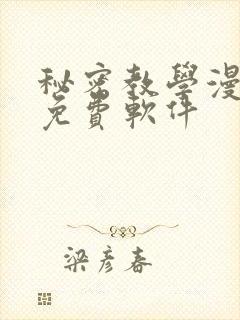 秘密教學漫
免費軟件
梁彥春